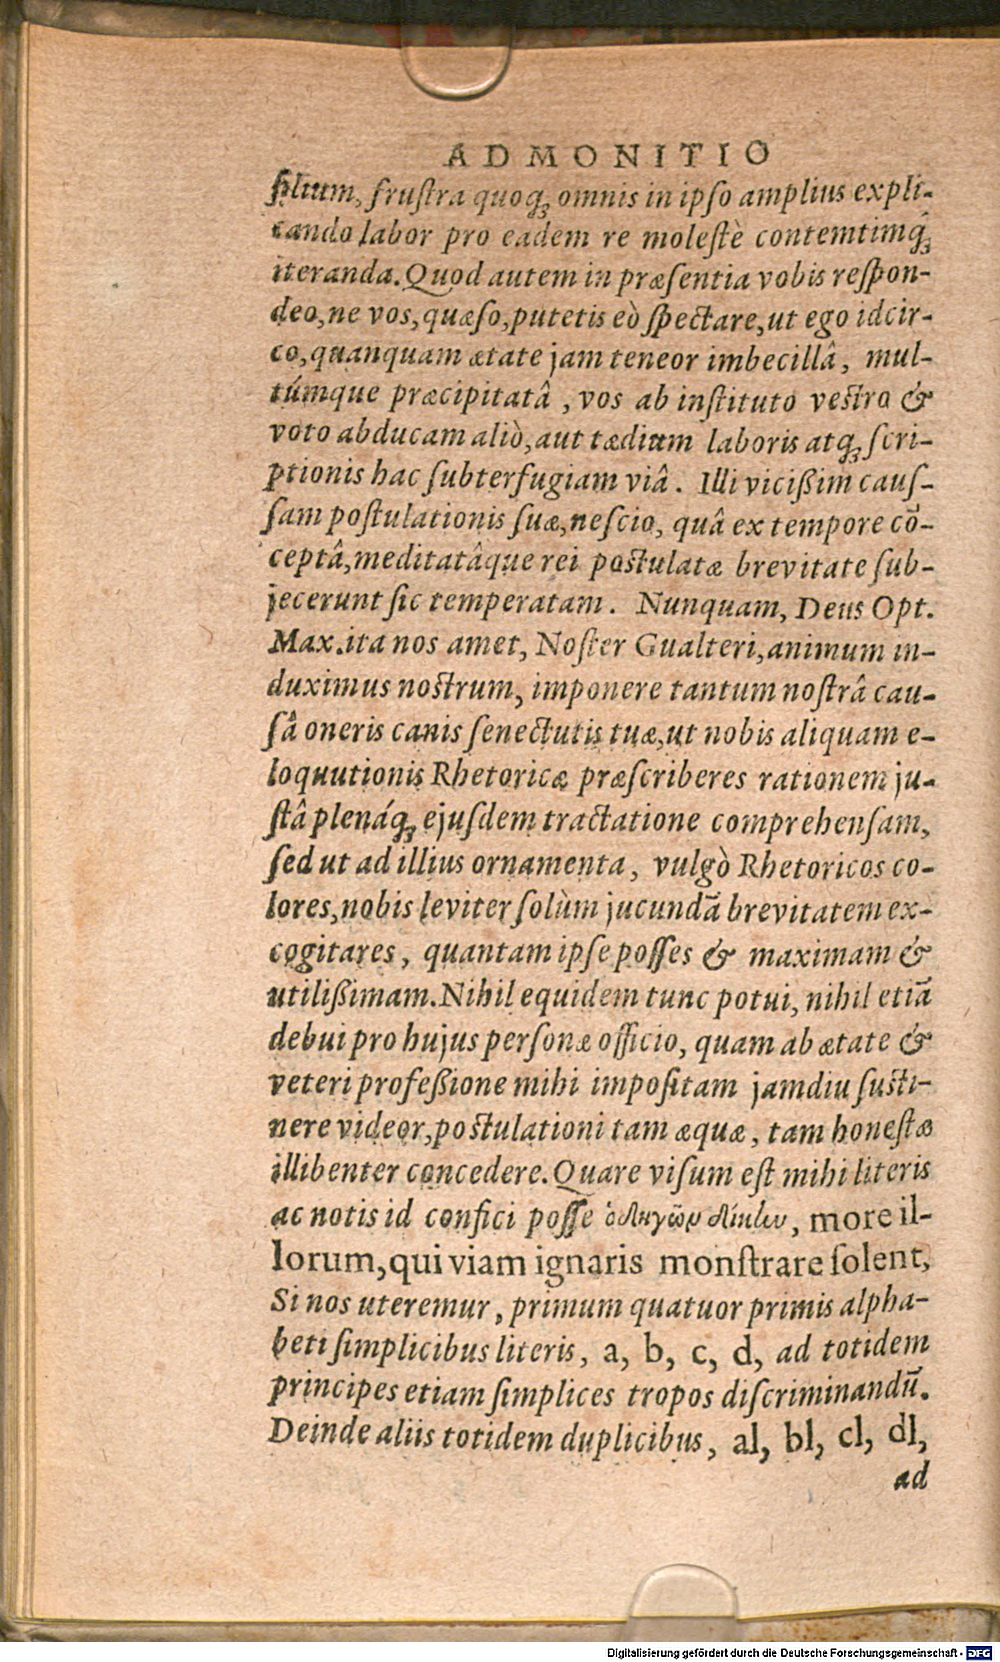 ADMONITIO
silium, frustra quoq; omnis in ipso amplius expli-
cando labor pro eadem re molestè contemtimq́;
iteranda. Quod autem in præsentia vobis respon-
deo, ne vos, quæso, putetis eò spectare, ut ego idcir-
co, quanquam ætate jam teneor imbecillâ, mul-
túmque præcipitatâ, vos ab instituto vestro &
voto abducam aliò, aut tædium laboris atq; scri-
ptionis hac subterfugiam viâ. Illi vicißim caus-
sam postulationis suæ, nescio, quâ ex tempore cō-
ceptâ, meditatâque rei postulatæ brevitate sub-
jecerunt sic temperatam. Nunquam, Deus Opt.
Max. ita nos amet, Noster Gualteri, animum in-
duximus nostrum, imponere tantum nostrâ cau-
sâ oneris canis senectutis tuæ, ut nobis aliquam e-
loquutionis Rhetoricæ præscriberes rationem ju-
stâ plenáq; ejusdem tractatione comprehensam,
sed ut ad illius ornamenta, vulgò Rhetoricos co-
lores, nobis leviter solùm jucundā brevitatem ex-
cogitares, quantam ipse posses & maximam &
utilißimam. Nihil equidem tunc potui, nihil etiā
debui pro hujus personæ officio, quam ab ætate &
veteri profeßione mihi impositam jamdiu susti-
nere videor, postulationi tam æquæ, tam honestæ
illibenter concedere. Quare visum est mihi literis
ac notis id confici posse ὁδηγῶν δίκην, more il-
lorum, qui viam ignaris monstrare solent,
Si nos uteremur, primum quatuor primis alpha-
beti simplicibus literis, a, b, c, d, ad totidem
principes etiam simplices tropos discriminandū.
Deinde aliis totidem duplicibus, al, bl, cl, dl,
ad
Digitalisierung gefördert durch die Deutsche Forschungsgemeinschaft - DFG